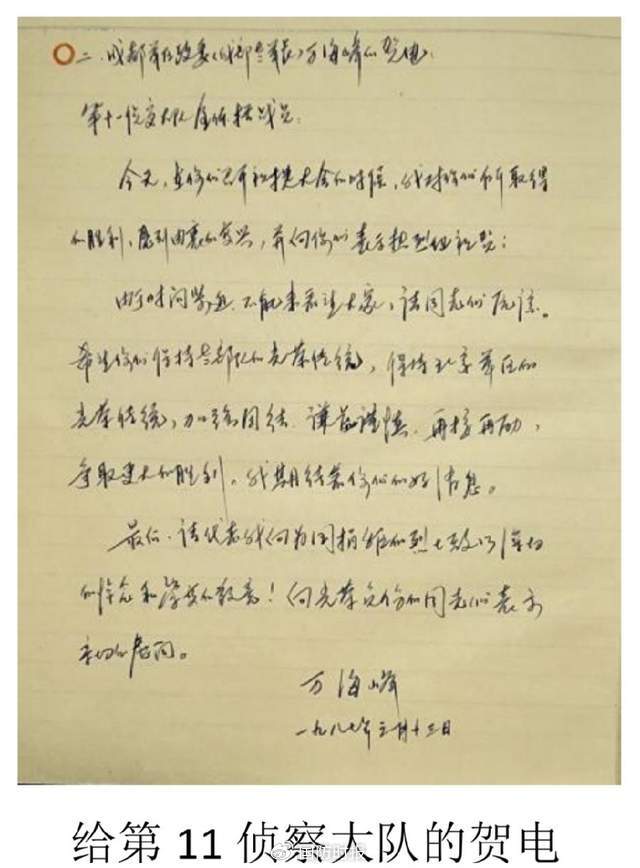 二、成都军区政委(成都参军长)万海峰的贺电
第十一侦察大队全体指战员：
今天，在你们召开祝捷大会的时候，我对你们所取得
的胜利，感到由衷的高兴，并向你们表示热烈的祝贺；
由于时间紧迫，不能来看望大家，请同志们原谅。
希望你们保持老部队的光荣传统，保持北京军区的
光荣传统，加强团结、谦虚谨慎、再接再励，
争取更大的胜利。我期待着你们的好消息。
最后，请代表我向为国捐躯的烈士致以深切
的悼念和崇高的敬意！向光荣负伤的同志们表示
亲切的慰问。
万海峰
一九八七年三月十三日
给第11侦察大队的贺电
国防时报